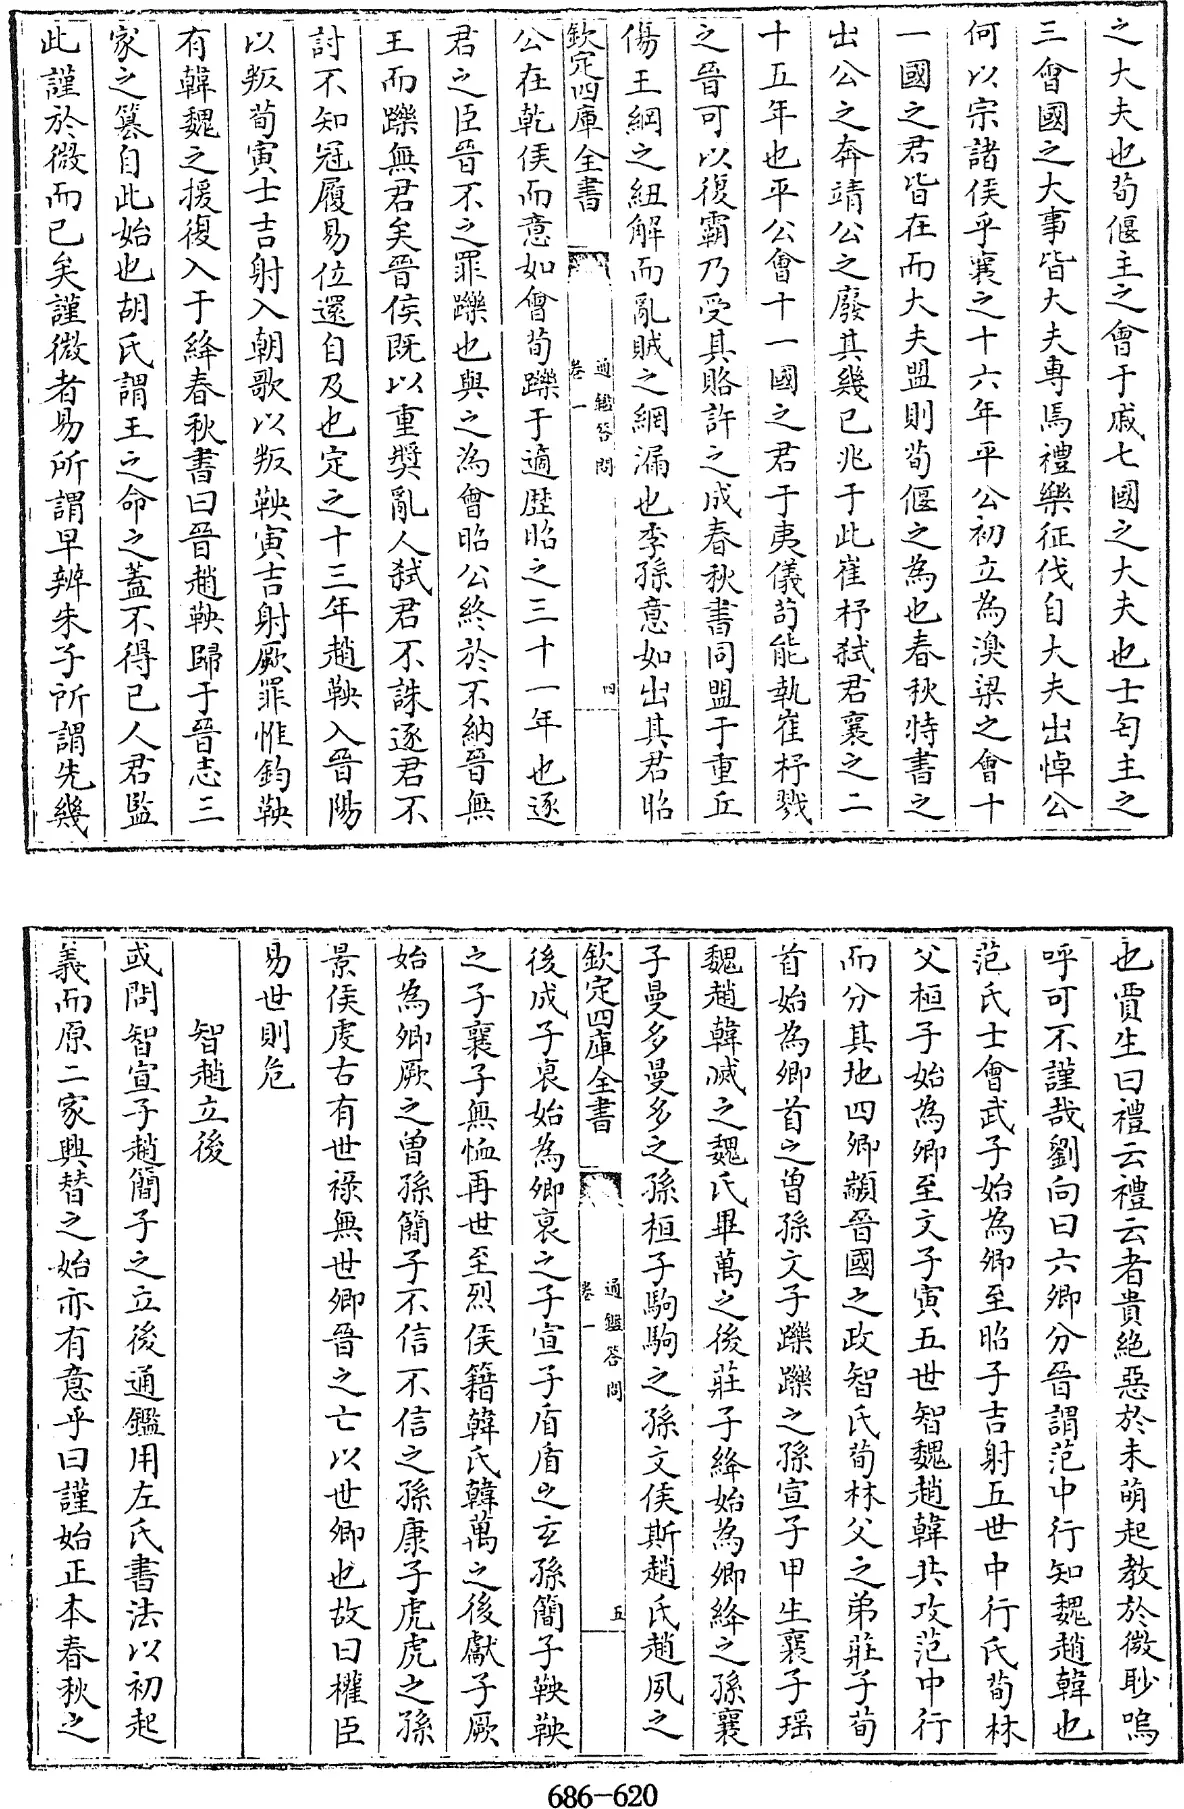 之大夫也荀偃主之會于戚七國之大夫也士匄主之
三會國之大事皆大夫專焉禮樂征伐自大夫出悼公
何以宗諸侯乎襄之十六年平公初立為湨梁之會十
一國之君皆在而大夫盟則荀偃之為也春秋特書之
出公之奔靖公之廢其幾已兆于此崔杼弑君襄之二
十五年也平公會十一國之君于夷儀苟能執崔杼戮
之晉可以復霸乃受其賂許之成春秋書同盟于重丘
傷王綱之紐解而亂賊之網漏也季孫意如出其君昭
欽定四庫全書
通鑑答問
卷一
四
公在乾侯而意如會荀躒于適歷昭之三十一年也逐
君之臣晉不之罪躒也與之為會昭公終於不納晉無
王而躒無君矣晉侯既以重獎亂人弑君不誅逐君不
討不知冠履易位還自及也定之十三年趙鞅入晉陽
以叛荀寅士吉射入朝歌以叛鞅寅吉射厥罪惟鈞鞅
有韓魏之援復入于絳春秋書曰晉趙鞅歸于晉志三
家之簒自此始也胡氏謂王之命之蓋不得已人君監
此謹於微而已矣謹微者易所謂早辨朱子所謂先幾
也賈生曰禮云禮云者貴絶惡於未萌起教於微眇嗚
呼可不謹哉劉向曰六卿分晉謂范中行知魏趙韓也
范氏士會武子始為卿至昭子吉射五世中行氏荀林
父桓子始為卿至文子寅五世智魏趙韓共攻范中行
而分其地四卿顓晉國之政智氏荀林父之弟莊子荀
首始為卿首之曽孫文子躒躒之孫宣子甲生襄子瑶
魏趙韓滅之魏氏畢萬之後莊子絳始為卿絳之孫襄
子曼多曼多之孫桓子駒駒之孫文侯斯趙氏趙夙之
欽定四庫全書
通鑑答問
卷一
五
後成子衰始為卿衰之子宣子盾盾之玄孫簡子鞅鞅
之子襄子無恤再世至烈侯籍韓氏韓萬之後獻子厥
始為卿厥之曽孫簡子不信不信之孫康子虎虎之孫
景侯虔古有世祿無世卿晉之亡以世卿也故曰權臣
易世則危
智趙立後
或問智宣子趙簡子之立後通鑑用左氏書法以初起
義而原二家興替之始亦有意乎曰謹始正本春秋之
686-620